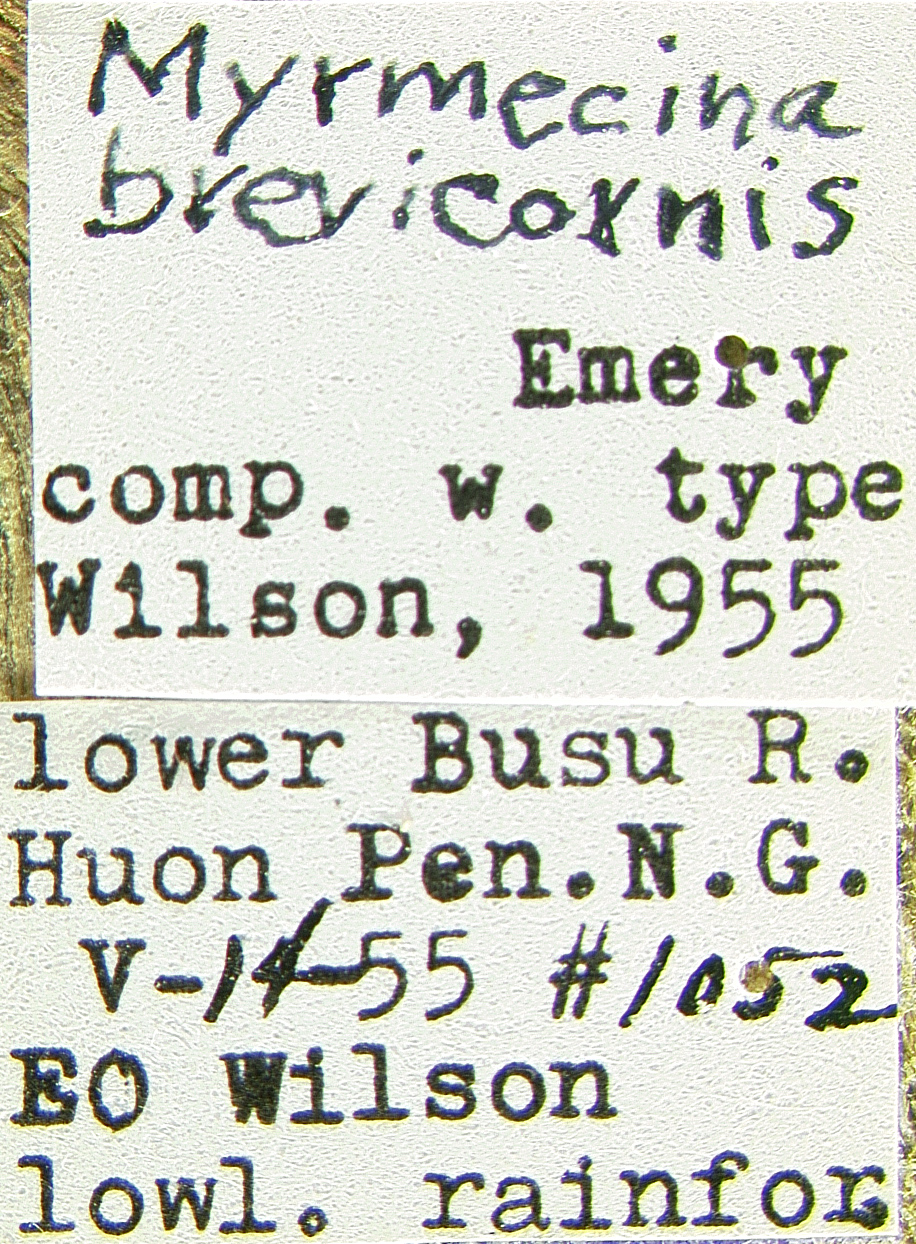 Myrmecina
brevicornis
Emery
comp. w. type
Wilson, 1955
lower Busu R.
Huon Pen.N.G.
V-14-55 #1052
EO Wilson
lowl. rainfor.